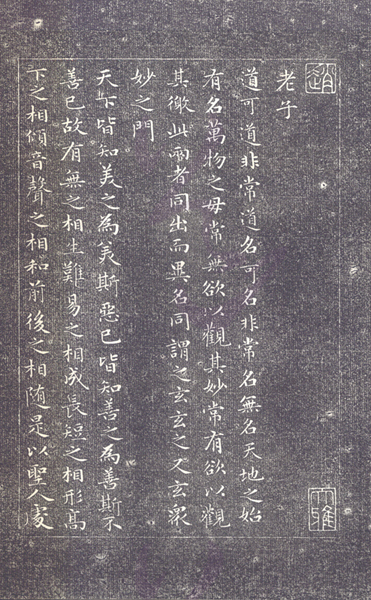 趙
大雅
老子
道可道非常道名可名非常名無名天地之始
有名萬物之母常無欲以觀其妙常有欲以觀
其徼此兩者同出而異名同謂之玄玄之又玄衆
妙之門
天下皆知美之為美斯惡已皆知善之為善斯不
善已故有無之相生難易之相成長短之相形高
下之相傾音聲之相和前後之相随是以聖人處